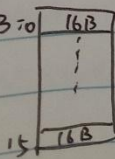 B = 0 16B
15 16B